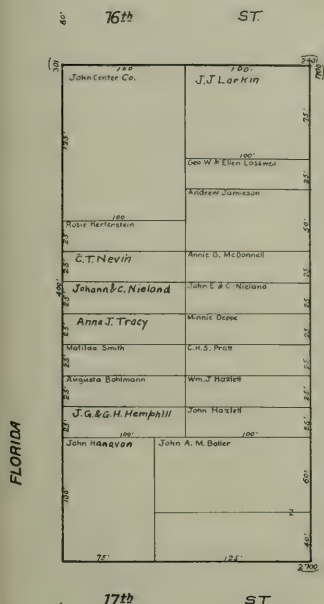 80' 76th ST.
301 240
100' 100' 1700
John Center Co. J.J Larkin
125' 75'
100'
Geo W & Ellen Lasswell 25'
Andrew Jamieson
100 50'
Rosie Herterstein
25'
C.T. Nevin Annie G. McDonnell
25' 25'
Johann & C. Nieland John E & C Nieland
400' 25' 25
Anna J. Tracy Minnie Deppe
25' 25'
Matilda Smith C.H.S. Pratt
25' 25'
Augusta Bohlmann Wm. J Hazlett
25' 25'
J.G. & G.H. Hemphill John Hazlett
25' 100' 100' 25'
John Hanavan John A. M. Boller
FLORIDA
100' 60'
40'
75' 125' 2700
17th ST